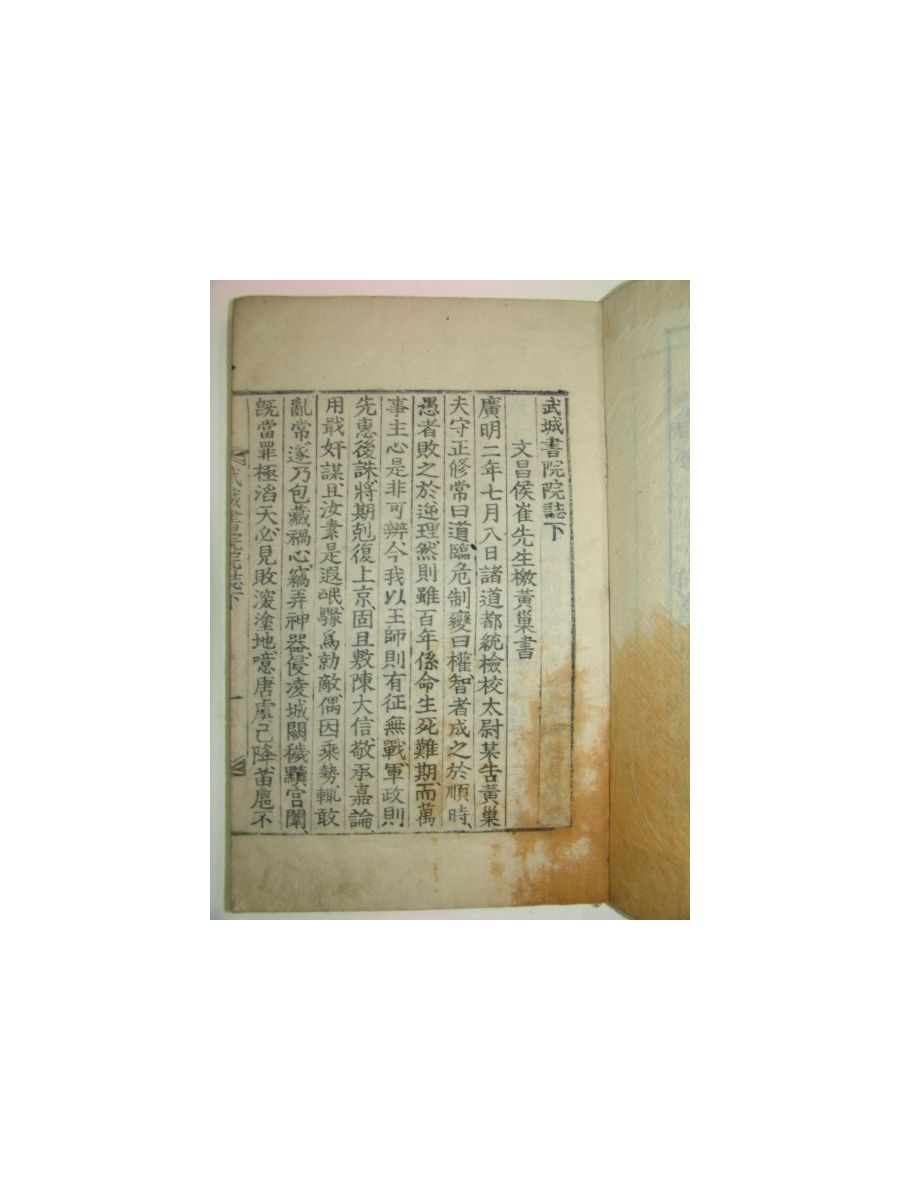 武城書院院誌下
文昌侯崔先生檄黃巢書
廣明二年七月八日諸道都統檢校太尉某告黃巢
夫守正修常曰道臨危制變曰權智者成之於順時
愚者敗之於逆理然則雖百年係命生死難期而萬
事主心是非可辨今我以王師則有征無戰軍政則
先惠後誅將期剋復上京固且敷陳大信敬承嘉諭
用戢奸謀且汝素是遐氓驟爲勍敵偶因乘勢輒敢
亂常遂乃包藏禍心竊弄神器侵凌城闕穢黷宮闈
旣當罪極滔天必見敗深塗地噫唐虞已降苗扈不
武城書院誌下 一